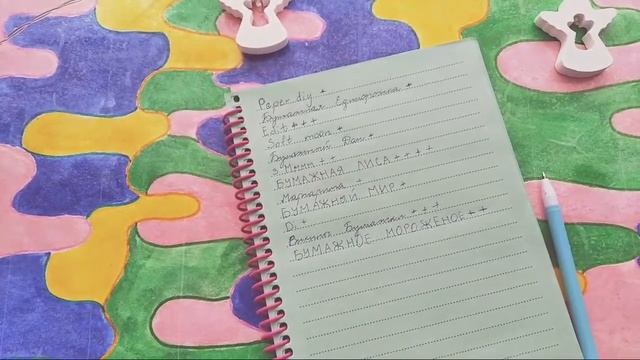 Paper diy +
Бумажная Единорожка +
Edit + + +
Soft moon +
Бумажный Дан +
з. Мммм + +
БУМАЖНАЯ ЛИСА + + + +
Маргарита +
БУМАЖНЫЙ МИР +
Di +
Бумажки + + +
БУМАЖНОЕ МОРОЖЕНОЕ + +